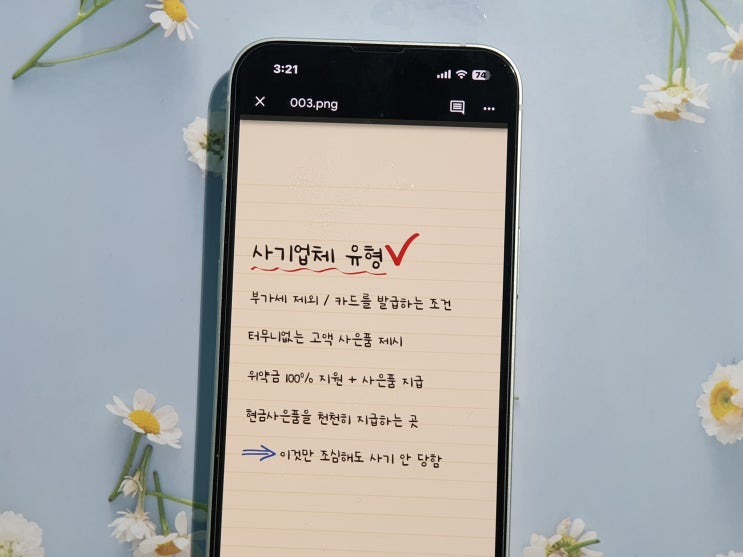 3:21 74
003.png
사기업체 유형
부가세 제외 / 카드를 발급하는 조건
터무니없는 고액 사은품 제시
위약금 100% 지원 + 사은품 지급
현금사은품을 천천히 지급하는 곳
이것만 조심해도 사기 안 당함